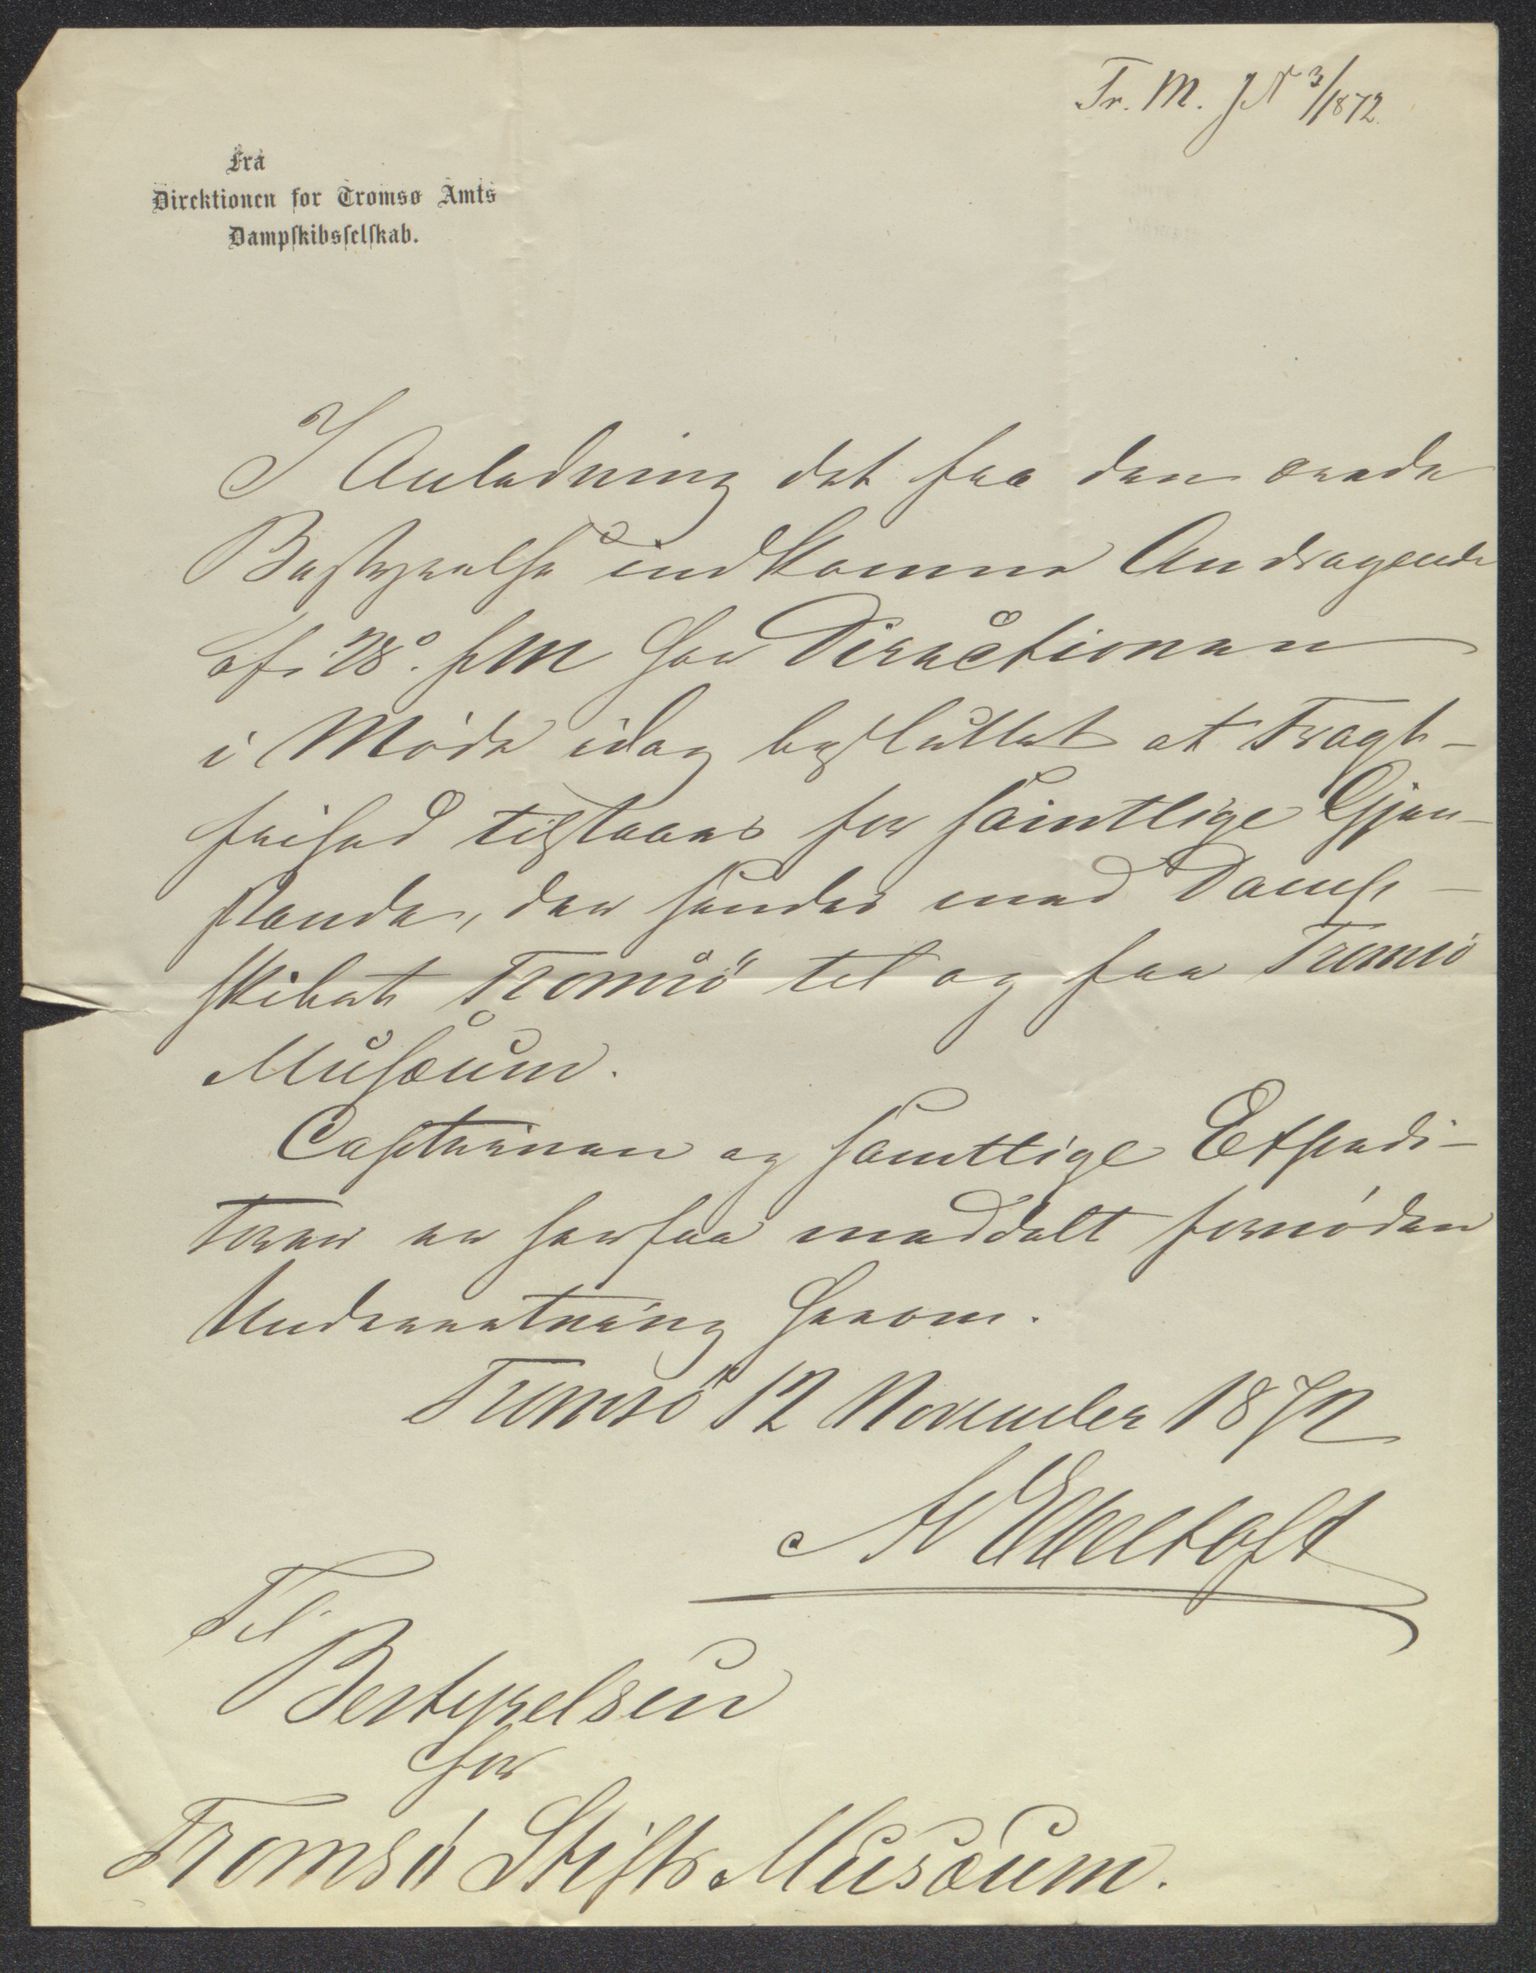 Tr. M. J N 3/1872.
Fra
Direktionen for Tromsø Amts
Dampskibsselskab.
I Anledning det fra den ærede
Bestyrelse indkomne Andragende
af 28de f M har Directionen
i Møde idag besluttet at Fragt-
frihed tilstaaes for samtlige Gjen-
stande, der sendes med Damp-
skibet "Tromsø" til og fra Tromsø
Musæum.
Capteinen og samtlige Expedi-
tører er herfra meddelt fornøden
Underretning herom.
Tromsø 12 November 1872
A Ebeltoft
Til
Bestyrelsen
for
Tromsø Stifts Musæum.